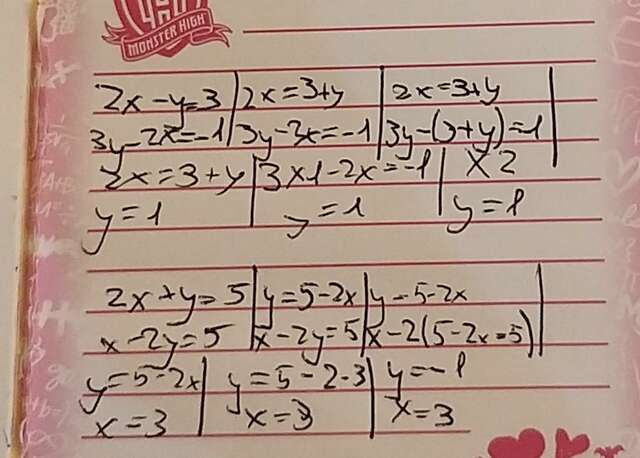 MONSTER HIGH
2x-y=3 | 2x=3+y | 2x=3+y |
3y-2x=-1 | 3y-2x=-1 | 3y-(3+y)=-1 |
2x=3+y | 3x1-2x=-1 | x2
y=1 | y=1 | y=1
2x+y=5 | y=5-2x | y=5-2x |
x-2y=5 | x-2y=5 | x-2(5-2x=5) |
y=5-2x | y=5-2·3 | y=-1
x=3 | x=3 | x=3